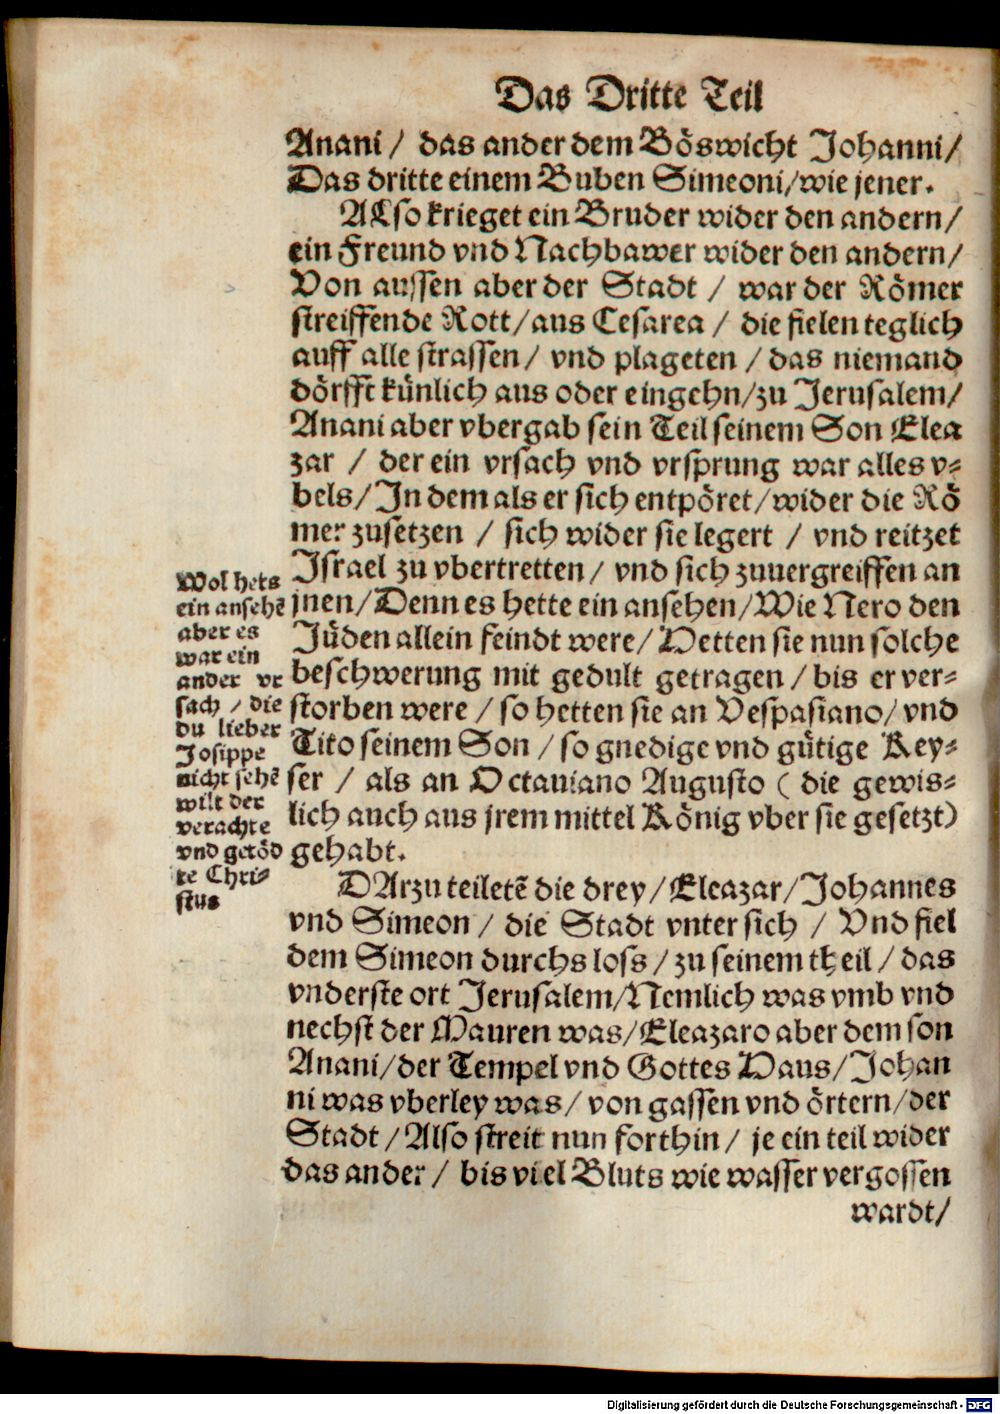 Das Dritte Teil
Anani / das ander dem Böswicht Johanni /
Das dritte einem Buben Simeoni / wie jener.
ALso krieget ein Bruder wider den andern /
ein Freund vnd Nachbawer wider den andern /
Von aussen aber der Stadt / war der Römer
streiffende Rott / aus Cesarea / die fielen teglich
auff alle strassen / vnd plageten / das niemand
dörfft künlich aus oder eingehn / zu Jerusalem /
Anani aber vbergab sein Teil seinem Son Elea
zar / der ein vrsach vnd vrsprung war alles v⸗
bels / In dem als er sich entpöret / wider die Rö
mer zusetzen / sich wider sie legert / vnd reitzet
Israel zu vbertretten / vnd sich zuuergreiffen an
jnen / Denn es hette ein ansehen / Wie Nero den
Jüden allein feindt were / Hetten sie nun solche
beschwerung mit gedult getragen / bis er ver⸗
storben were / so hetten sie an Vespasiano / vnd
Tito seinem Son / so gnedige vnd gütige Key⸗
ser / als an Octauiano Augusto ( die gewis⸗
lich auch aus jrem mittel König vber sie gesetzt)
gehabt.
Wol hets
ein ansehē
aber es
war ein
ander vr
sach / die
du lieber
Josippe
nicht sehē
wilt der
verachte
vnd getöd
te Chri⸗
stus
DArzu teiletē die drey / Eleazar / Johannes
vnd Simeon / die Stadt vnter sich / Vnd fiel
dem Simeon durchs loss / zu seinem theil / das
vnderste ort Jerusalem / Nemlich was vmb vnd
nechst der Mauren was / Eleazaro aber dem son
Anani / der Tempel vnd Gottes Haus / Johan
ni was vberley was / von gassen vnd örtern / der
Stadt / Also streit nun forthin / je ein teil wider
das ander / bis viel Bluts wie wasser vergossen
wardt /
Digitalisierung gefördert durch die Deutsche Forschungsgemeinschaft - DFG